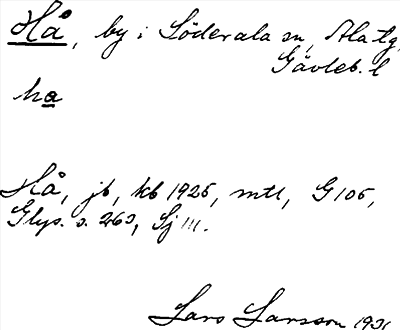 Hå, by i Söderala sn, Ala tg,
Gävleb. l
ha
Hå, jb, kb 1925, mtl, G 105,
Glys. s. 263, Sj III.
Lars Larsson 1931